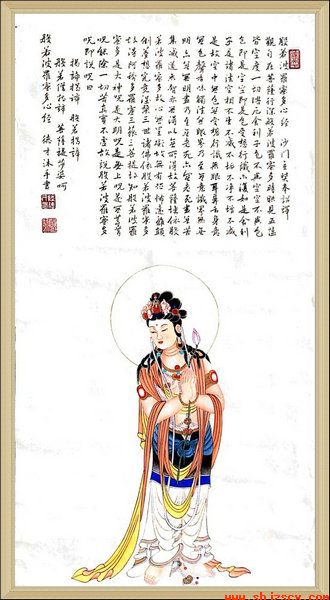 般若波羅蜜多心經 沙門玄奘奉詔譯
觀自在菩薩行深般若波羅蜜多時照見五蘊
皆空度一切苦厄舍利子色不異空空不異色
色即是空空即是色受想行識亦復如是舍利
子是諸法空相不生不滅不垢不淨不增不減
是故空中無色無受想行識無眼耳鼻舌身意
無色聲香味觸法無眼界乃至無意識界無無
明亦無無明盡乃至無老死亦無老死盡無苦
集滅道無智亦無得以無所得故菩提薩埵依般
若波羅蜜多故心無罣礙無罣礙故無有恐怖遠離顛
倒夢想究竟涅槃三世諸佛依般若波羅蜜多
故得阿耨多羅三藐三菩提故知般若波羅
蜜多是大神咒是大明咒是無上咒是無等等
咒能除一切苦真實不虛故說般若波羅蜜多
咒即說咒曰
揭諦揭諦 般若揭諦
般若僧揭諦 菩提薩婆訶
般若波羅蜜多心經 德才沐手書